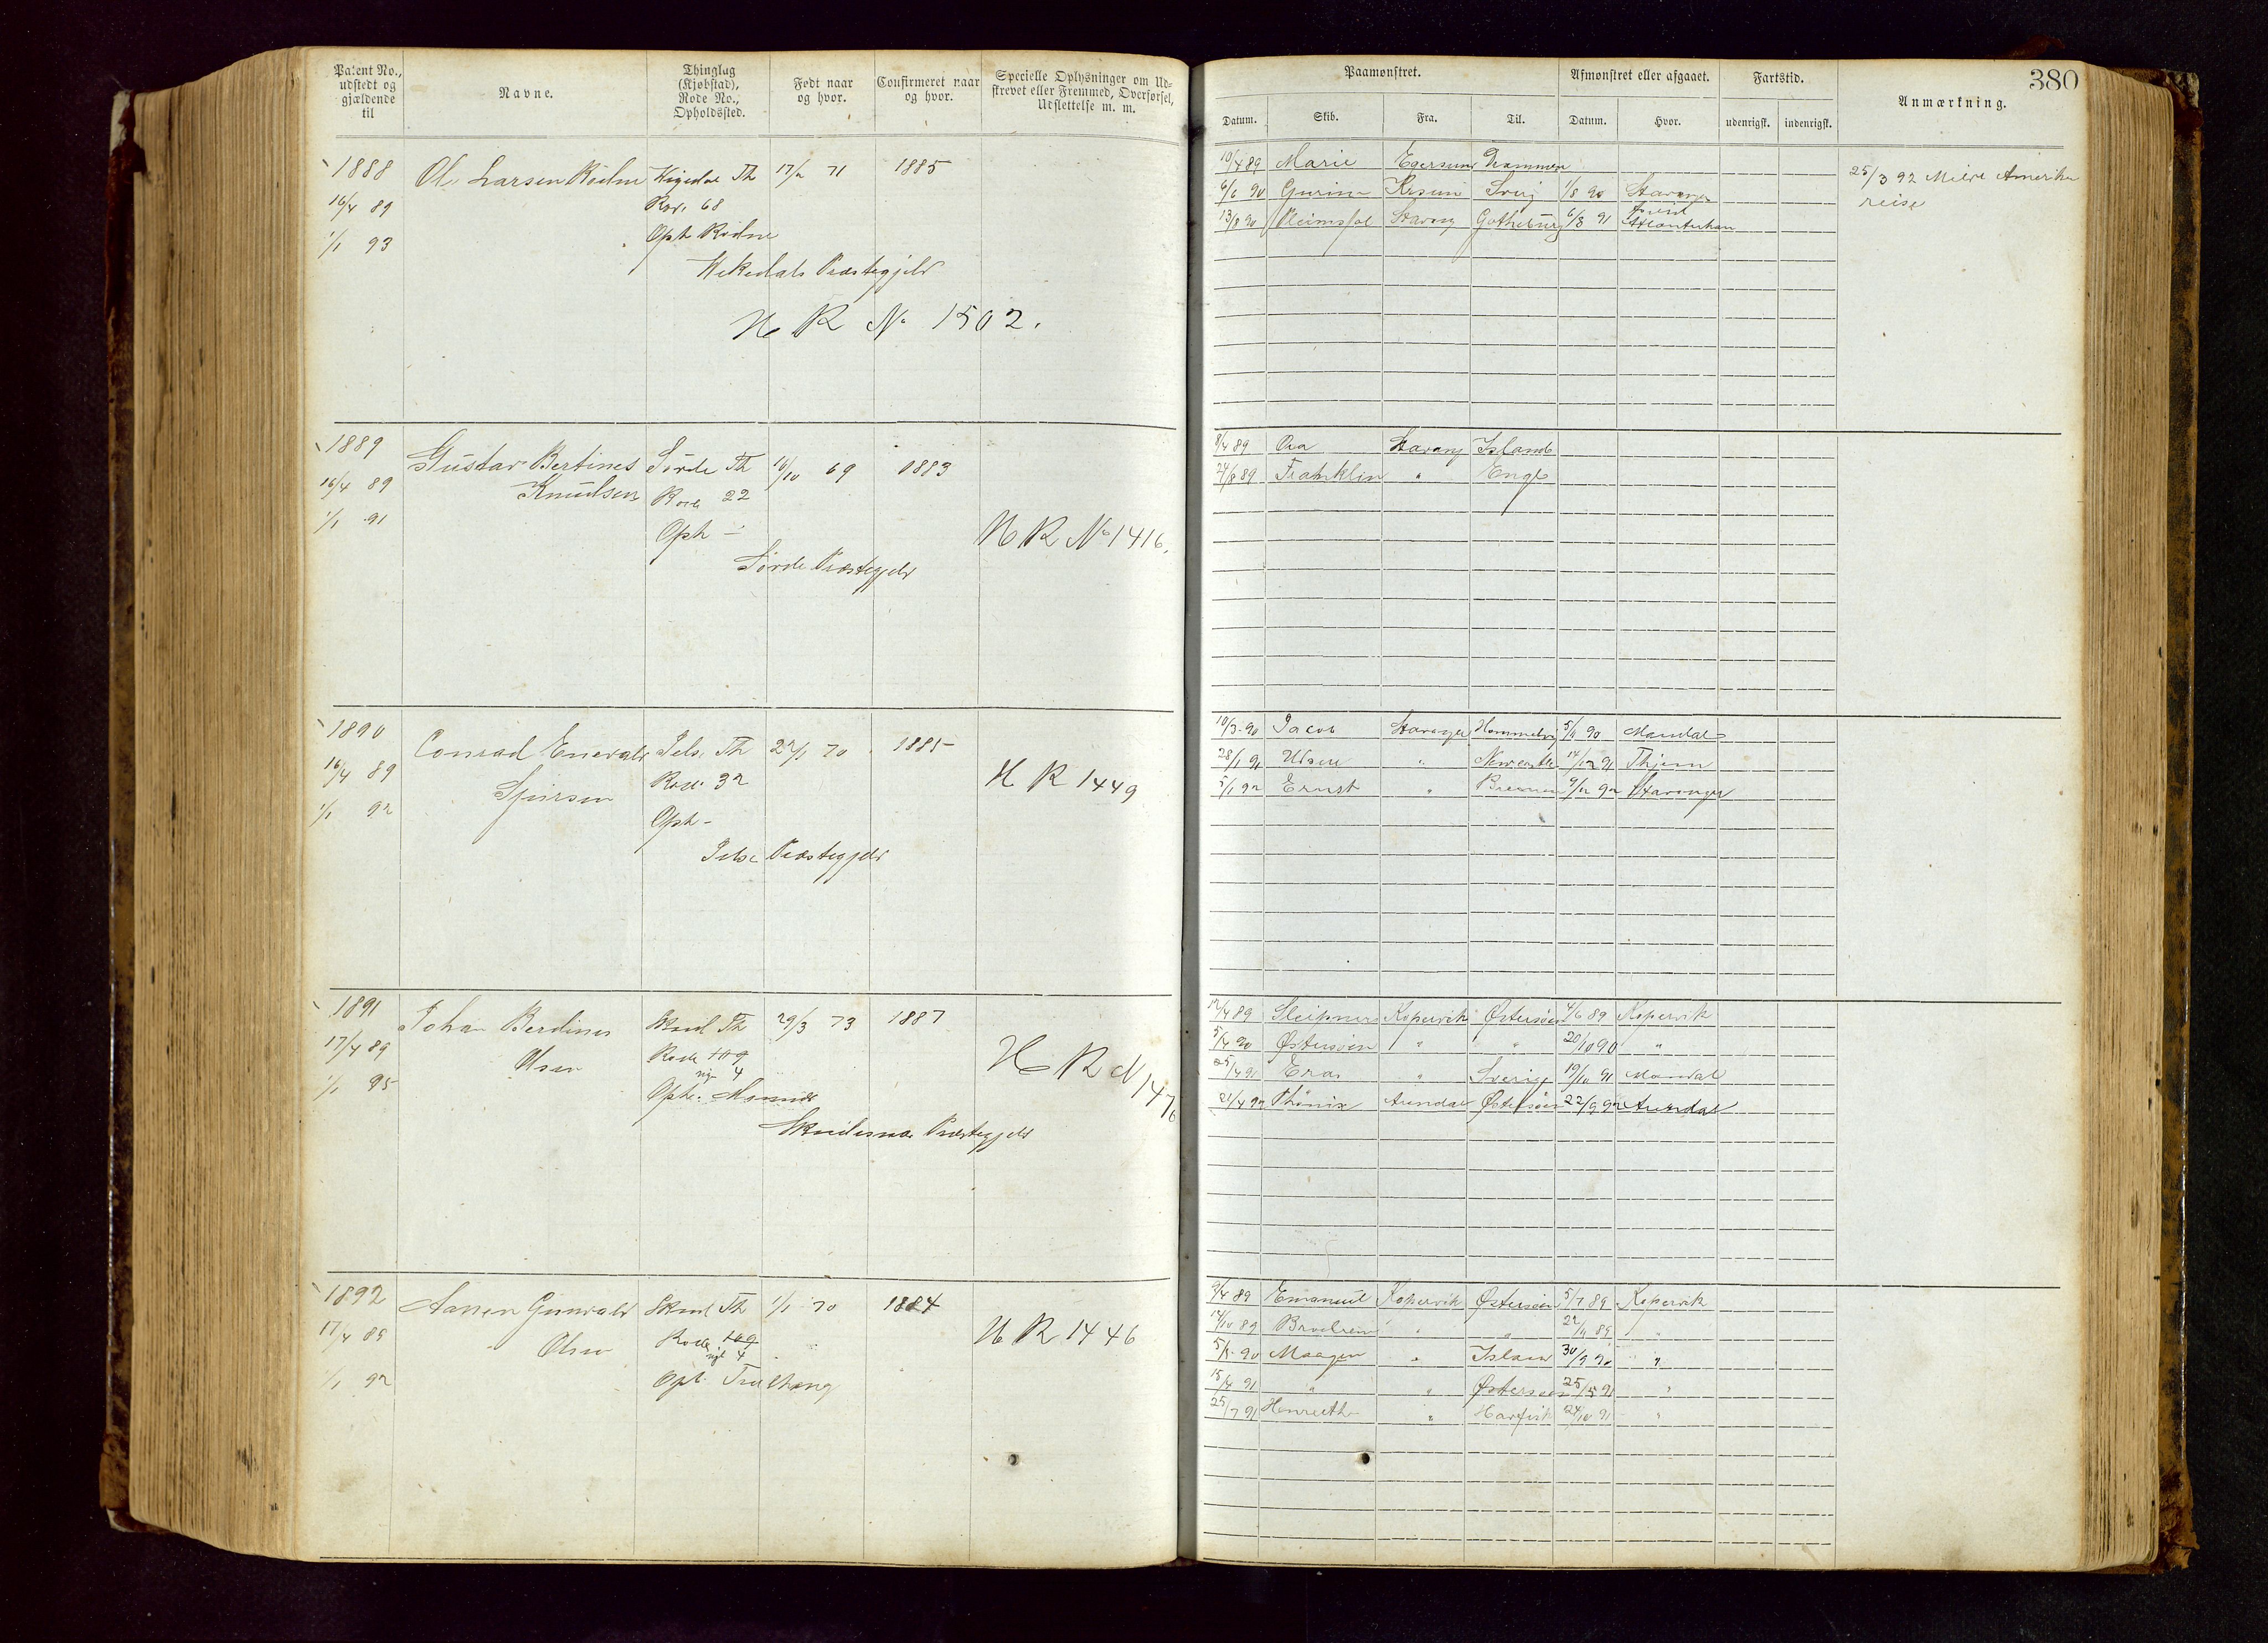 380
Patent No., udstedt og gjældende til
Navne.
Thinglag (Kjøbstad), Rode No., Opholdssted.
Født naar og hvor.
Confirmeret naar og hvor.
Specielle Oplysninger om Udstrevet eller Fremmed, Overførsel, Udslettelse m. m.
Paamønstret.
Afmønstret eller afgaaet.
Fartstid.
Anmærkning.
Datum. Skib. Fra. Til. Datum. Hvor. udenrigsk. indenrigsk.
1888 Ole Larsen Rødne Th 17/2 71 1885
16/4 89 Rode 68
1/1 93 Oph Rødne
Vikedals Præstegjeld
H R No 1502.
10/4 89 Marie Egersund Drammen
6/6 90 Sverj 1/8 90 Stavanger
13/8 90 Stavang Gotheburg 6/8 91
25/3 92 Meldt Amerika
reise
1889 Gustav Bertines Sørde Th 16/10 69 1883
16/4 89 Knudsen Rode 22
1/1 91 Oph -
H R No 1416.
Sørde Præstegjeld
8/4 89 Stavang Island
24/8 89 Franklin " Engl
1890 Conrad Enevald Jels. Th 22/1 70 1885
16/4 89 Sjursen Rode 32
1/1 92 Oph -
H R 1449
Jelse Præstegjeld
10/3 90 Jacob Stavanger Hommelvig 5/11 90 Mandal
28/1 91 " Newcastle 14/12 91
5/1 92 Ernst " Bremen 9/12 92 Stavanger
1891 Johan Berdines Skud Th 29/3 73 1887
17/4 89 Olsen Rode 109
1/1 95 4
Oph.
H R N 1476
Skudesnæs Præstegjeld
12/4 89 Sleipner Kopervik Østersøen 4/6 89 Kopervik
5/4 90 Østersøen " " 20/10 90 "
25/4 91 " Sverige 19/10 91 Mandal
21/4 92 Phönix Arendal Østersøen 22/9 92 Arendal
1892 Aanen Gunvald Skud Th 1/1 70 1884
17/4 89 Olsen Rode 109
4
1/1 92 Oph.
H R 1446
9/4 89 Emanuel Kopervik Østersøen 5/7 89 Kopervik
14/10 89 Brødrene " " 22/11 89 "
5/5 90 Maagen " Island 30/9 90 "
15/4 91 " " Østersøen 25/5 91 "
25/7 91 Henriette " Havfisk 24/10 91 "